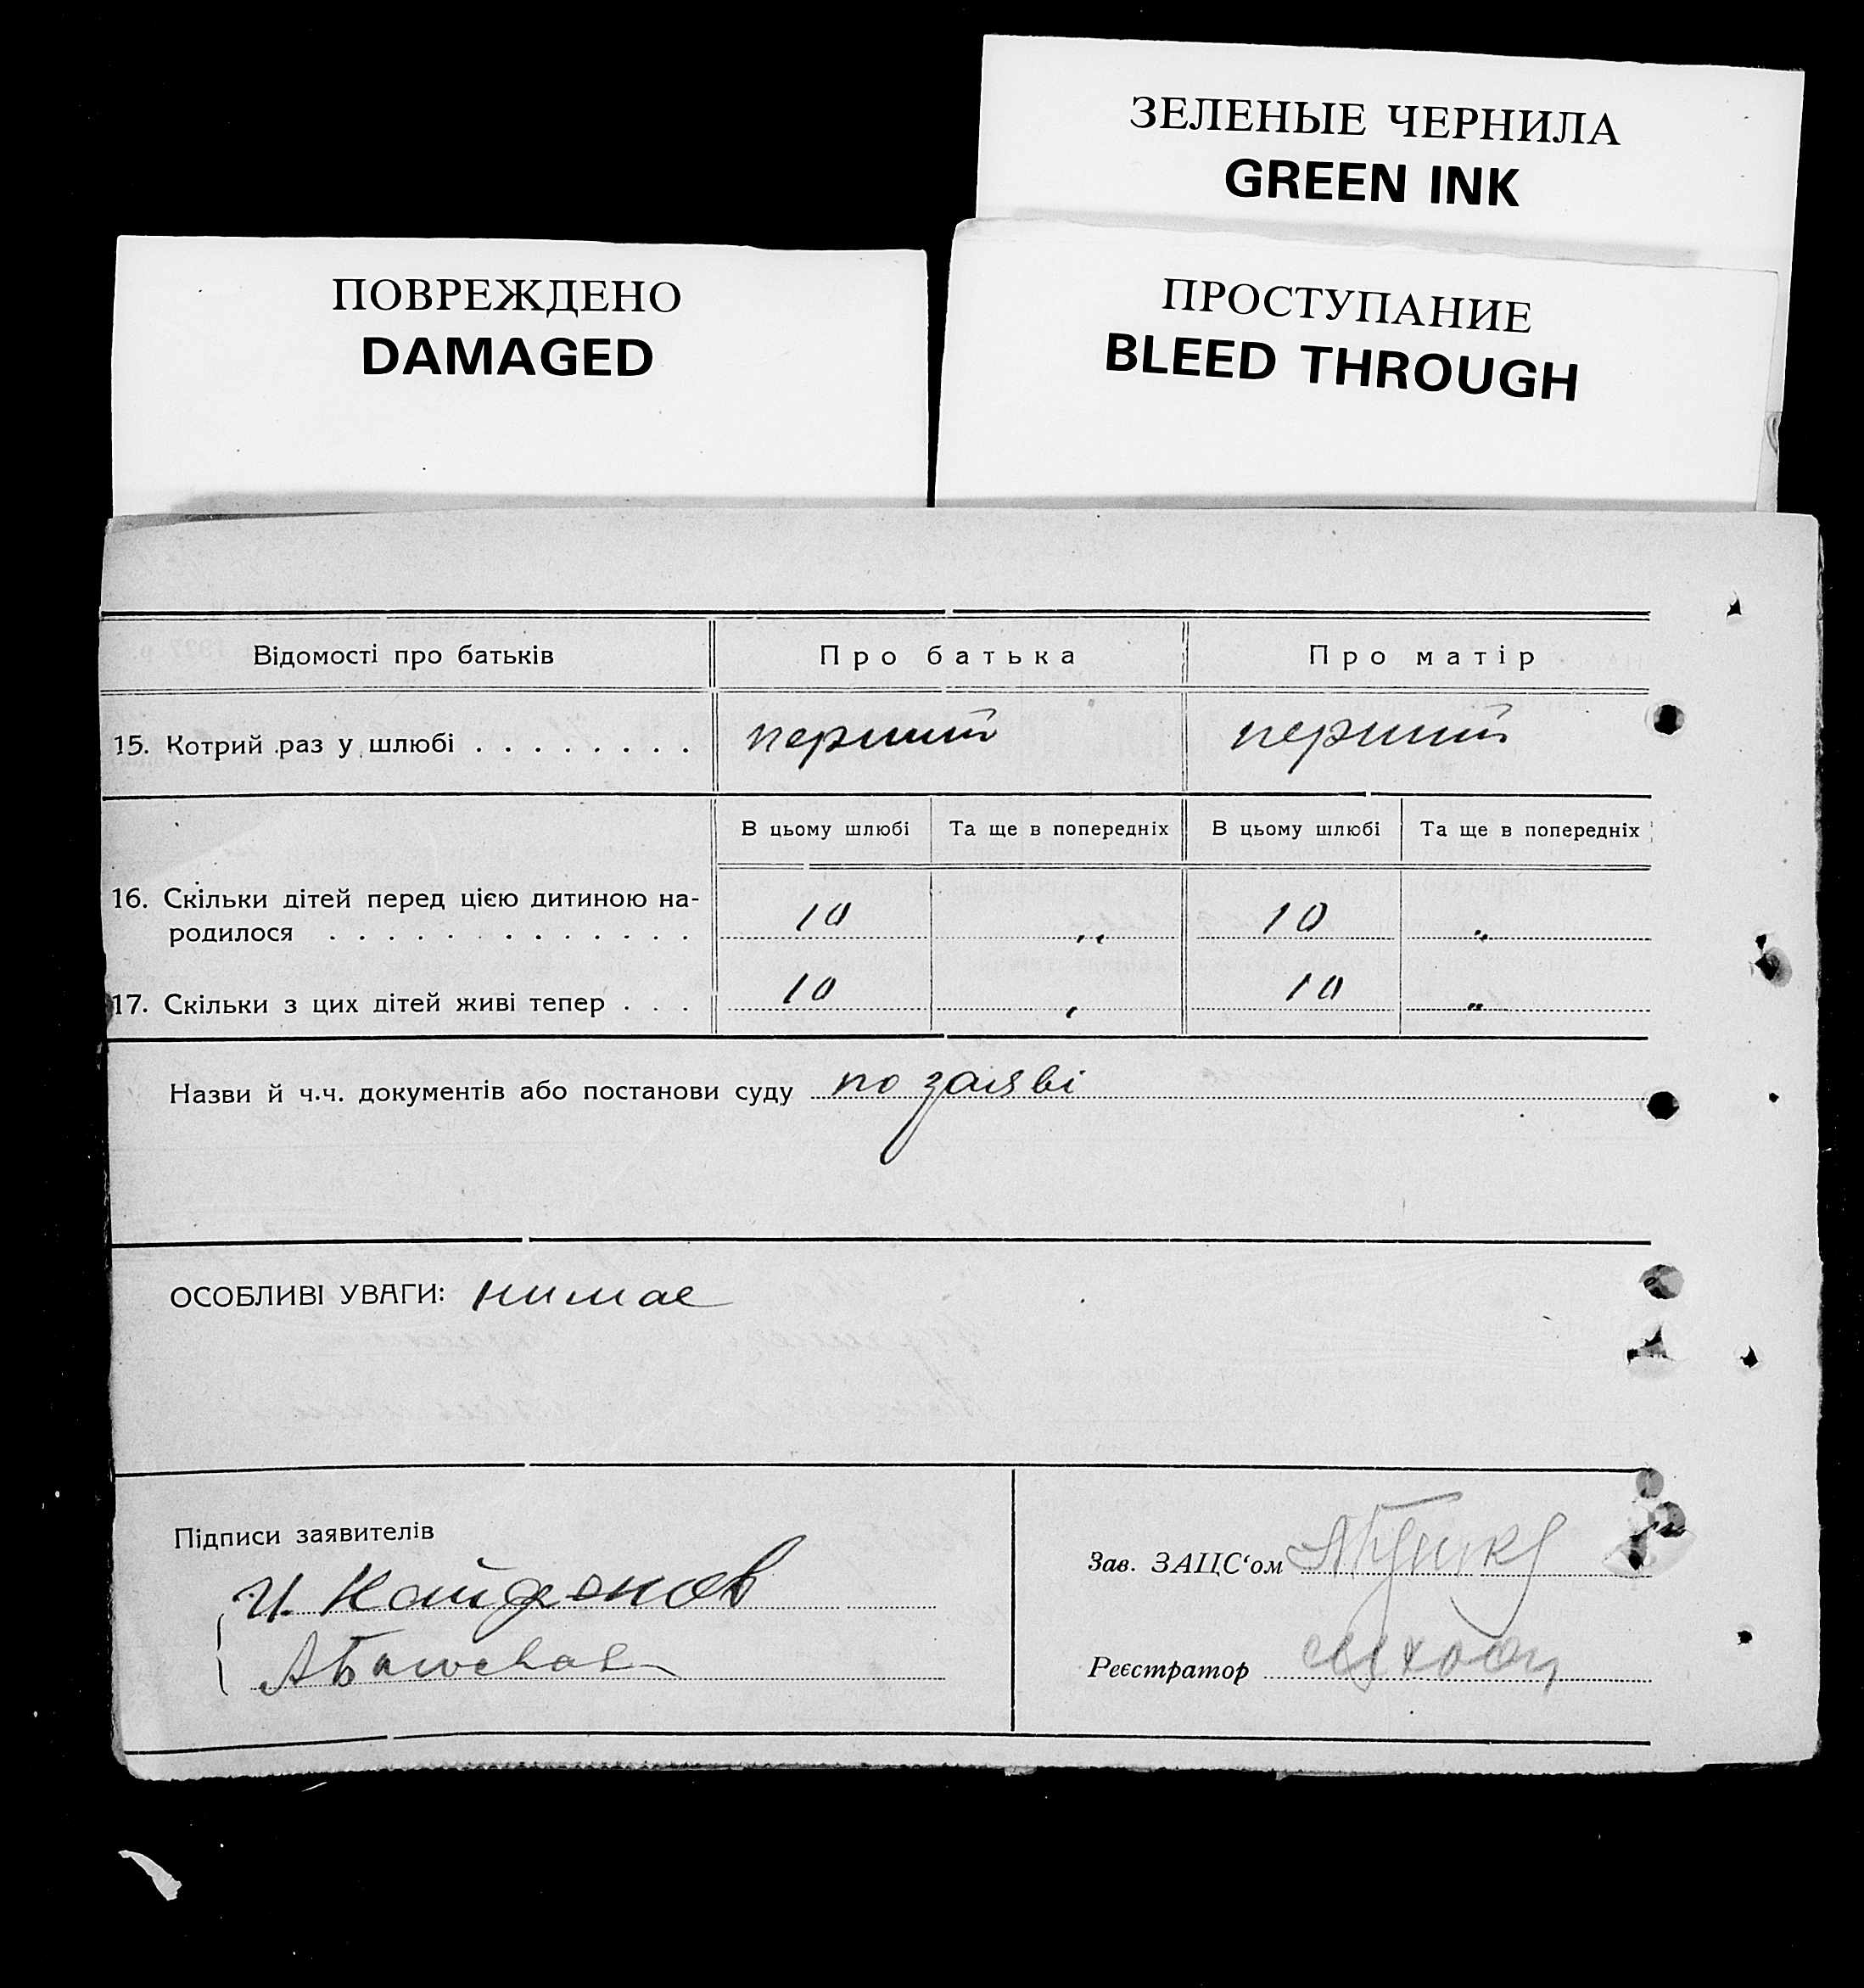 ЗЕЛЕНЫЕ ЧЕРНИЛА
GREEN INK
ПОВРЕЖДЕНО
DAMAGED
ПРОСТУПАНИЕ
BLEED THROUGH
Відомості про батьків Про батька Про матір
15. Котрий раз у шлюбі . . . . . . . . перший перший
В цьому шлюбі Та ще в попередніх В цьому шлюбі Та ще в попередніх
16. Скільки дітей перед цією дитиною на-
родилося . . . . . . . . . . . . . 10 „ 10 „
17. Скільки з цих дітей живі тепер . . . 10 „ 10 „
Назви й ч.ч. документів або постанови суду по заяві
ОСОБЛИВІ УВАГИ: нимае
Підписи заявителів
И. Найденов
Зав. ЗАЦС‘ом
Реєстратор